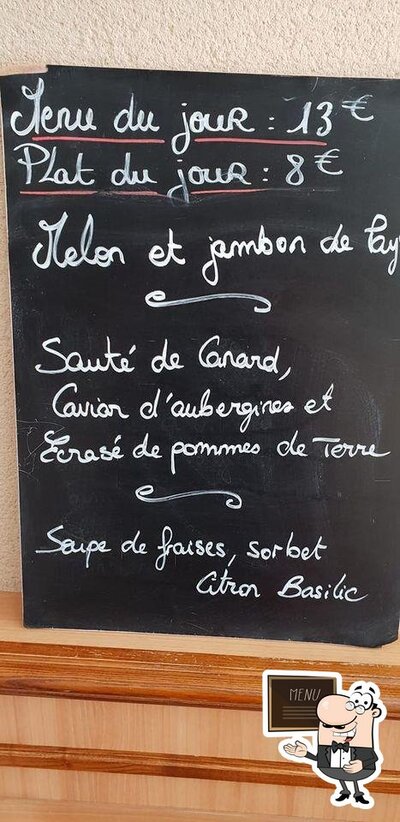 Menu du jour : 13 €
Plat du jour : 8 €
Melon et jambon de Pay
Sauté de Canard,
Caviar d'aubergines et
Ecrasé de pommes de Terre
Soupe de fraises, sorbet
Citron Basilic
MENU